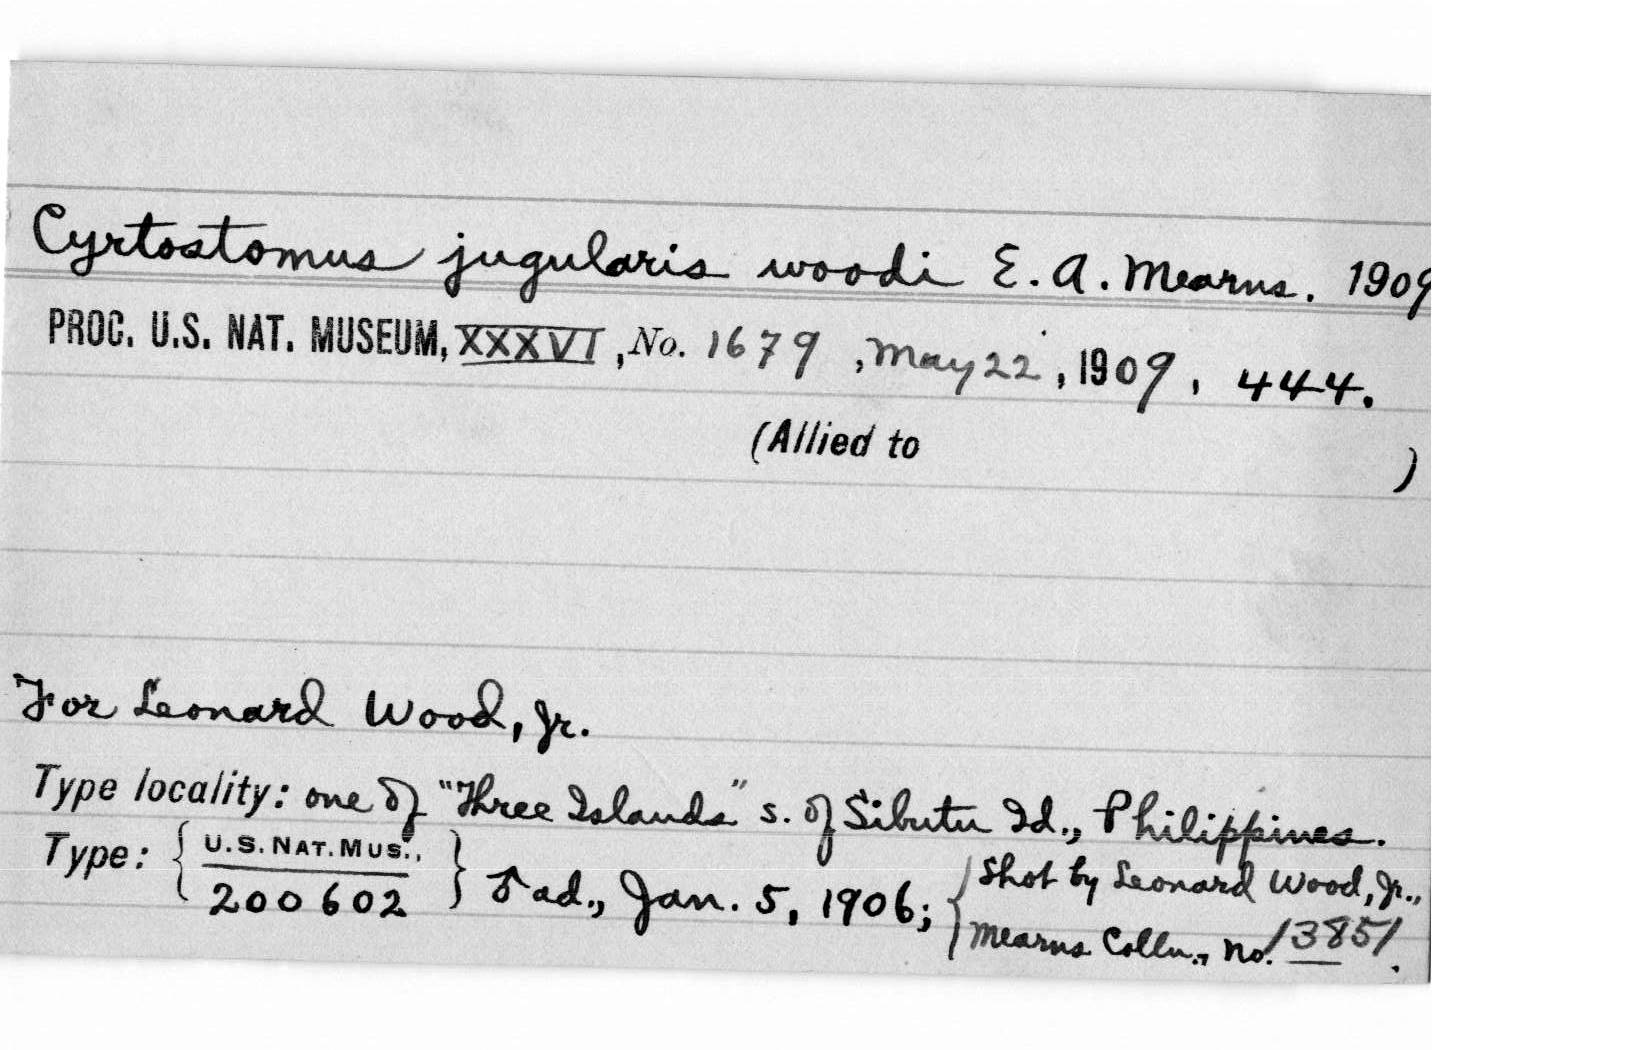 Cyrtostomus jugularis woodi E. A. Mearns. 1909
PROC. U.S. NAT. MUSEUM, XXXVI, No. 1679, May 22, 1909, 444.
(Allied to )
For Leonard Wood, Jr.
Type locality: one of "Three Islands" s. of Sibutu Id., Philippines.
Type: { U.S. NAT. MUS., 200602 } ♂ ad., Jan. 5, 1906; { Shot by Leonard Wood, Jr.,
Mearns Colln., no. 13851.